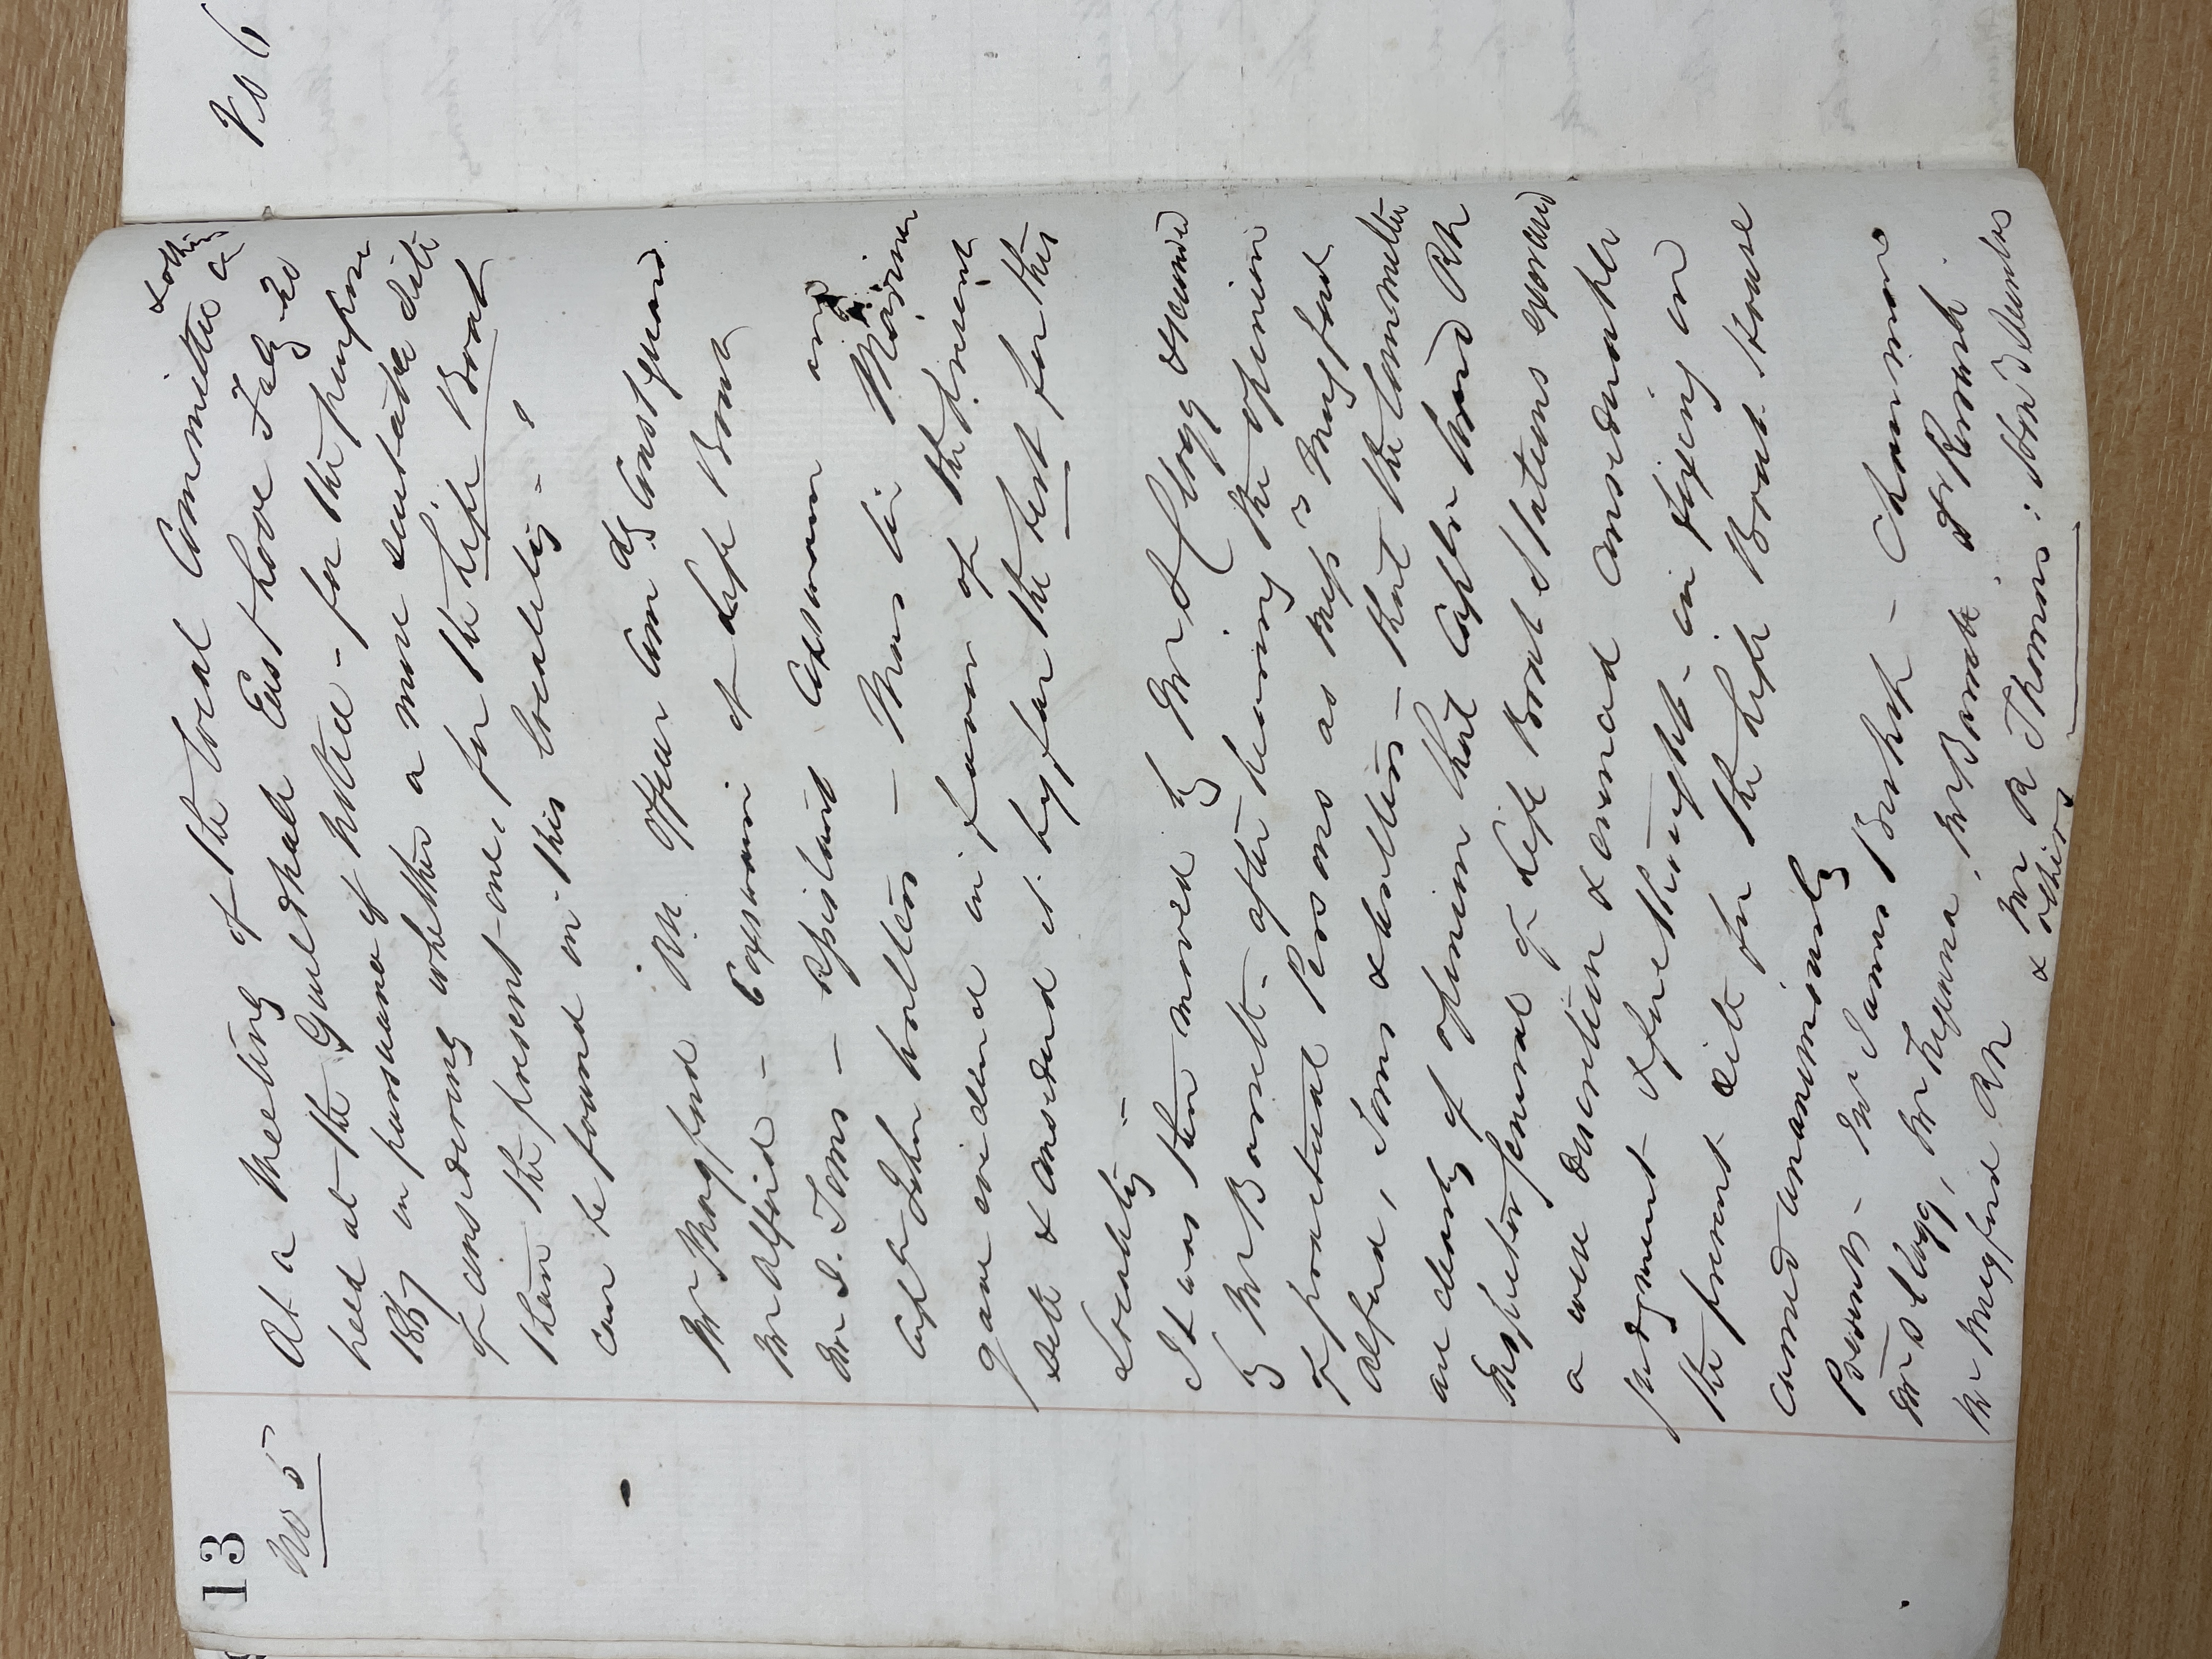 13
No 5
At a Meeting of the Local Committee & others
held at the Guildhall East Looe July 20
1867 in pursuance of Notice - for the purpose
of considering whether a more suitable site
than the present one, for the Life Boat
can be found in this locality -
Mr Mugford RN Officer Com dg Coastguard
Mr Alford - Coxswain of Life Boat
Mr J. Toms - Assistant Coxswain and
Capt n John - Mas tr Mariner
gave evidence in favor of the present
site & considered it by far the best for this
Locality -
It was then moved by Mr Clogg seconded
by Mr Bonsett - after hearing the opinion
of practical Persons as Mess rs Mugford
Alford, Toms & - that the Committee
are clearly of opinion that Capt n Ward RN
Inspector general of Life Boat Stations exercised
a wise discretion & evinced considerable
judgment & forethought - in fixing on
the present site for the Life Boat House
Carried unanimously
Present - Mr James Bishop - Chairman
Mr Clogg, Mr
Mr Mugford RN & Mr R Thomas: Hon
& others
No 6